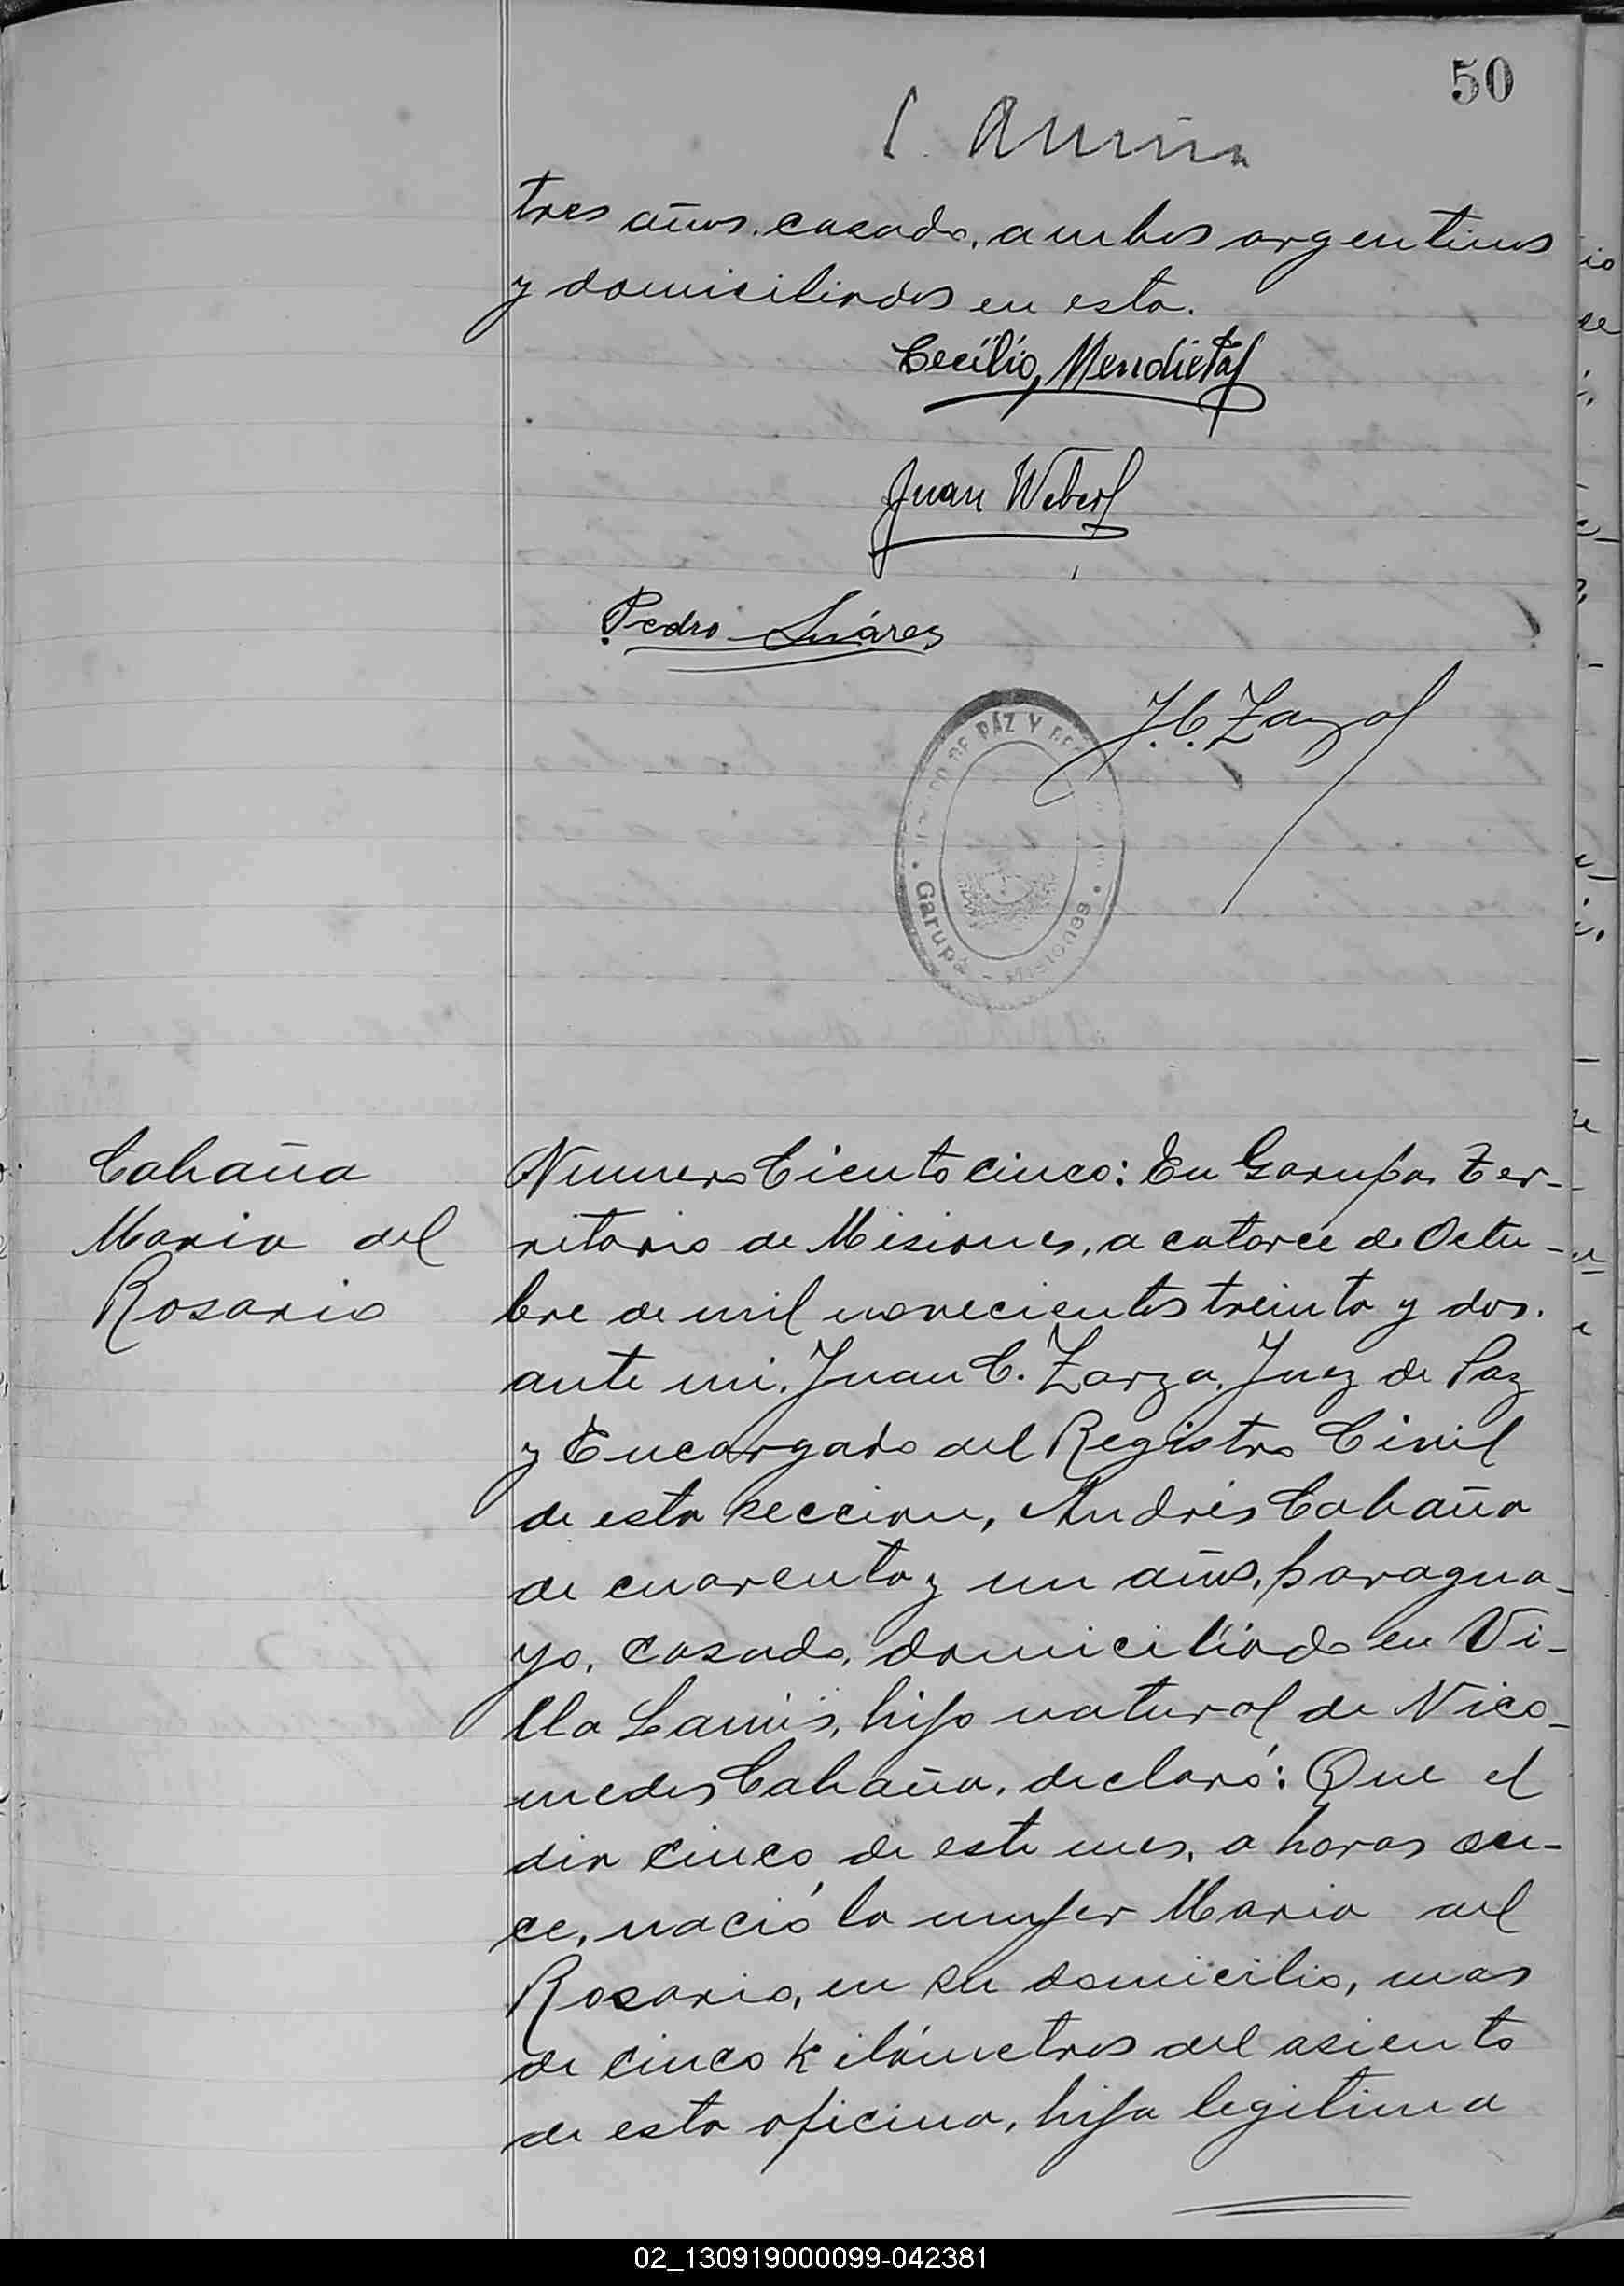 50
tres años, casado, ambos argentinos
y domiciliados en esta.
Cecilio Mendieta
Juan Weber
Pedro Suárez
J. C. Zarza
DE PAZ Y
Garupá - Misiones
Cabaña
Maria del
Rosario
Numero Ciento cinco: En Garupa, Ter-
ritorio de Misiones, a catorce de Octu-
bre de mil novecientos treinta y dos.
ante mi, Juan C. Zarza, Juez de Paz
y Encargado del Registro Civil
de esta seccion, Andrés Cabaña
de cuarenta y un años, paragua-
yo, casado, domiciliado en Vi-
lla Lanús, hijo natural de Nico-
medes Cabaña, declaró: Que el
dia cinco de este mes, a horas on-
ce, nació la mujer Maria del
Rosario, en su domicilio, mas
de cinco kilómetros del asiento
de esta oficina, hija legitima
02_130919000099-042381